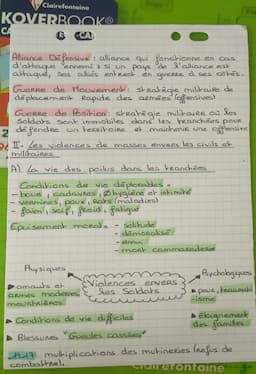 Clairefontaine
KOVERBOOK
Alliance Défensive : alliance qui fonctionne en cas
d'attaque ennemi : si un pays de l'alliance est
attaqué, ses alliés entrent en guerre à ses côtés.
Guerre de Mouvement : stratégie militaire de
déplacement rapide des armées (offensives)
Guerre de Position : stratégie militaire où les
soldats sont immobiles dans les tranchées pour
défendre un territoire et maintenir une offensive
II- Les violences de masses envers les civils et
militaires
A) La vie des poilus dans les tranchées
Conditions de vie déplorables :
- boue, cadavres, hygiène et intimité
- vermines, poux, rats (maladies)
- faim, soif, froid, fatigue
Epuisement moral : - solitude
- démoralisé
- ennui
- mort cammarades
Physiques
Psychologiques
Violences envers
les Soldats
armes modernes
meurtrières
peur,
-isme
Conditions de vie difficiles
éloignement
des familles
Blessures "Gueules cassées"
1917 multiplications des mutineries (refus de
combattre).
Clairefontaine